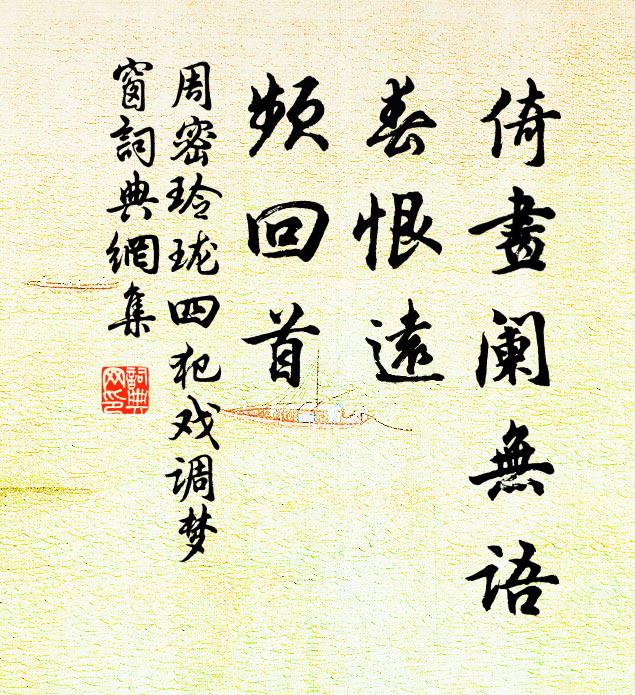 倚畫阑無語
春恨遠
頻回首
周密玲珑四犯戏调梦
窗詞典網集
詞典
网印